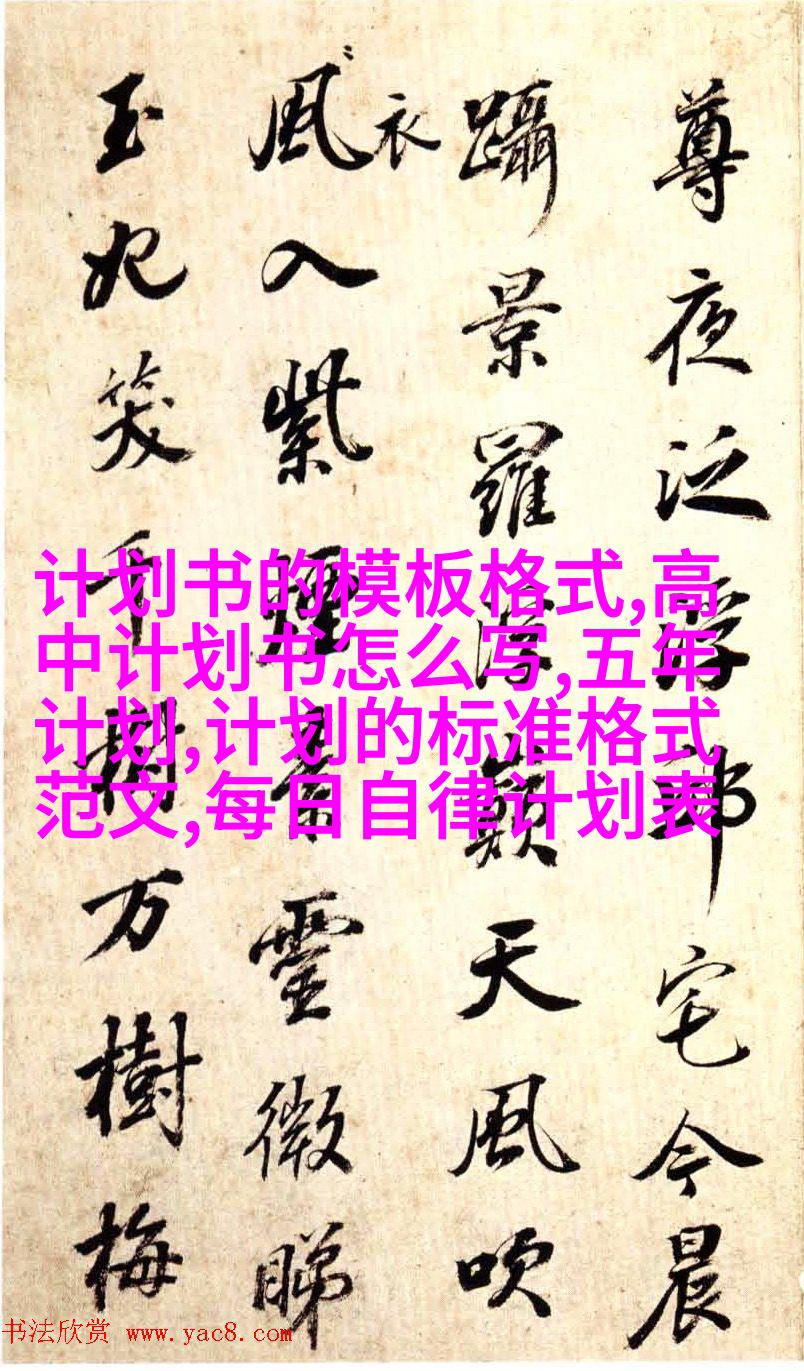 尊夜泛浮邱宅今晨
躡景羅浮巔天風吹
衣
風入紫煙靈微睇
玉妃笑千樹万樹梅
计划书的模板格式,高
中计划书怎么写,五年
计划,计划的标准格式
范文,每日自律计划表
书法欣赏 www.yac8.com